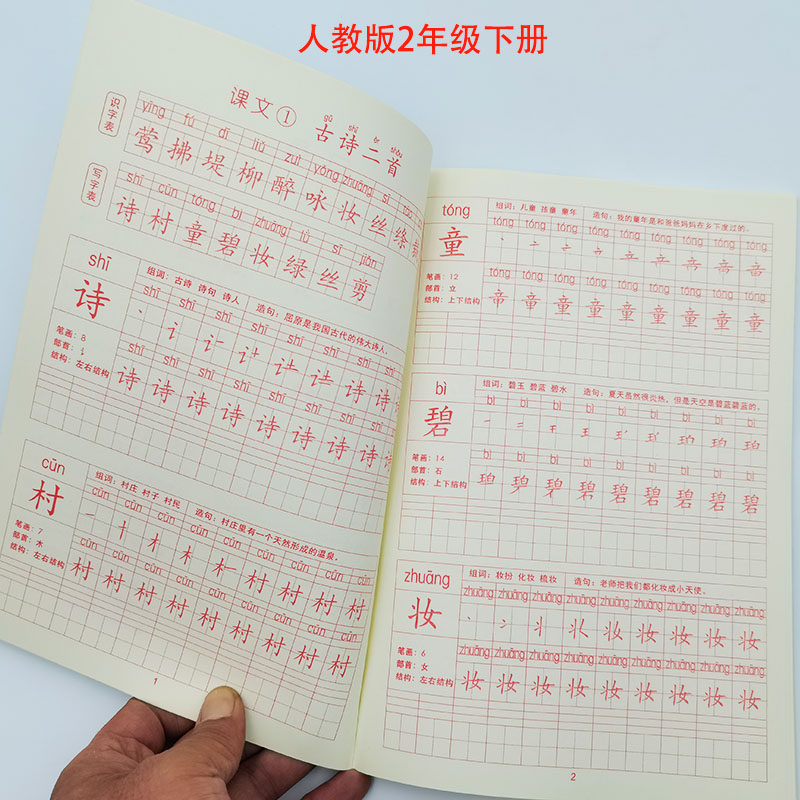 人教版2年级下册
课文① 古诗二首
gǔ shī èr shǒu
识字表
yīng fú dī liǔ zuì yǒng zhuāng sī tāo
莺 拂 堤 柳 醉 咏 妆 丝 绦 裁
写字表
shī cūn tóng bì zhuāng lǜ sī jiǎn
诗 村 童 碧 妆 绿 丝 剪
shī
诗
组词：古诗 诗句 诗人 造句：屈原是我国古代的伟大诗人。
shī shī shī shī shī shī shī shī
笔画：8
部首：讠
结构：左右结构
shī shī shī shī shī shī shī shī
诗 诗 诗 诗 诗 诗 诗 诗 诗
cūn
村
组词：村庄 村子 村民 造句：村庄里有一个天然形成的温泉。
cūn cūn cūn cūn cūn cūn cūn cūn
一 十 才 木 村 村 村
笔画：7
部首：木
结构：左右结构
cūn cūn cūn cūn cūn cūn cūn cūn cūn
村 村 村 村 村 村 村 村 村
1
tóng
童
组词：儿童 孩童 童年 造句：我的童年是和爸爸妈妈在乡下度过的。
tóng tóng tóng tóng tóng tóng tóng tóng tóng
笔画：12
部首：立
结构：上下结构
tóng tóng tóng tóng tóng tóng tóng tóng tóng
童 童 童 童 童 童 童 童
bì
碧
组词：碧玉 碧蓝 碧水 造句：夏天虽然很炎热，但是天空是碧蓝碧蓝的。
bì bì bì bì bì bì bì bì bì
笔画：14
部首：石
结构：上下结构
bì bì bì bì bì bì bì bì bì
碧 碧 碧 碧 碧 碧
zhuāng
妆
组词：妆扮 化妆 梳妆 造句：老师把我们都化妆成小天使。
zhuāng zhuāng zhuāng zhuāng zhuāng zhuāng zhuāng zhuāng zhuāng
妆 妆 妆 妆
笔画：6
部首：女
结构：左右结构
zhuāng zhuāng zhuāng zhuāng zhuāng zhuāng zhuāng zhuāng zhuāng
妆 妆 妆 妆 妆 妆 妆 妆 妆
2